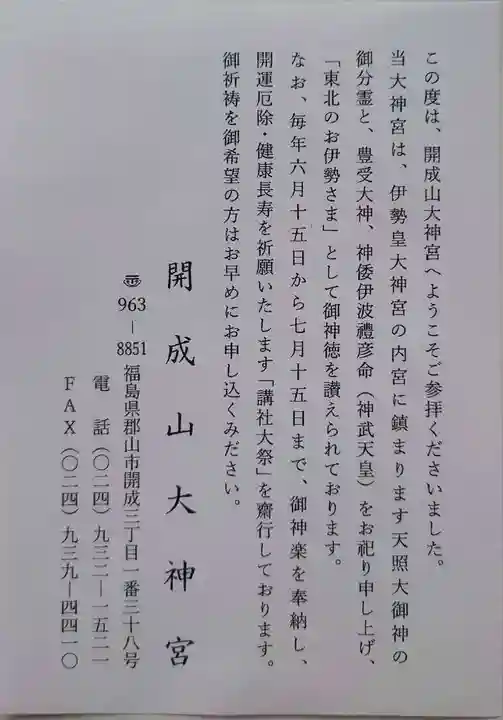 この度は、開成山大神宮へようこそご参拝くださいました。
当大神宮は、伊勢皇大神宮の内宮に鎮まります天照大御神の
御分霊と、豊受大神、神倭伊波禮彦命（神武天皇）をお祀り申し上げ、
「東北のお伊勢さま」として御神徳を讃えられております。
なお、毎年六月十五日から七月十五日まで、御神楽を奉納し、
開運厄除・健康長寿を祈願いたします「講社大祭」を齋行しております。
御祈祷を御希望の方はお早めにお申し込くみださい。
開成山大神宮
〠963－8851 福島県郡山市開成三丁目一番三十八号
電話（〇二四）九三二－一五二一
ＦＡＸ（〇二四）九三九－四四一〇